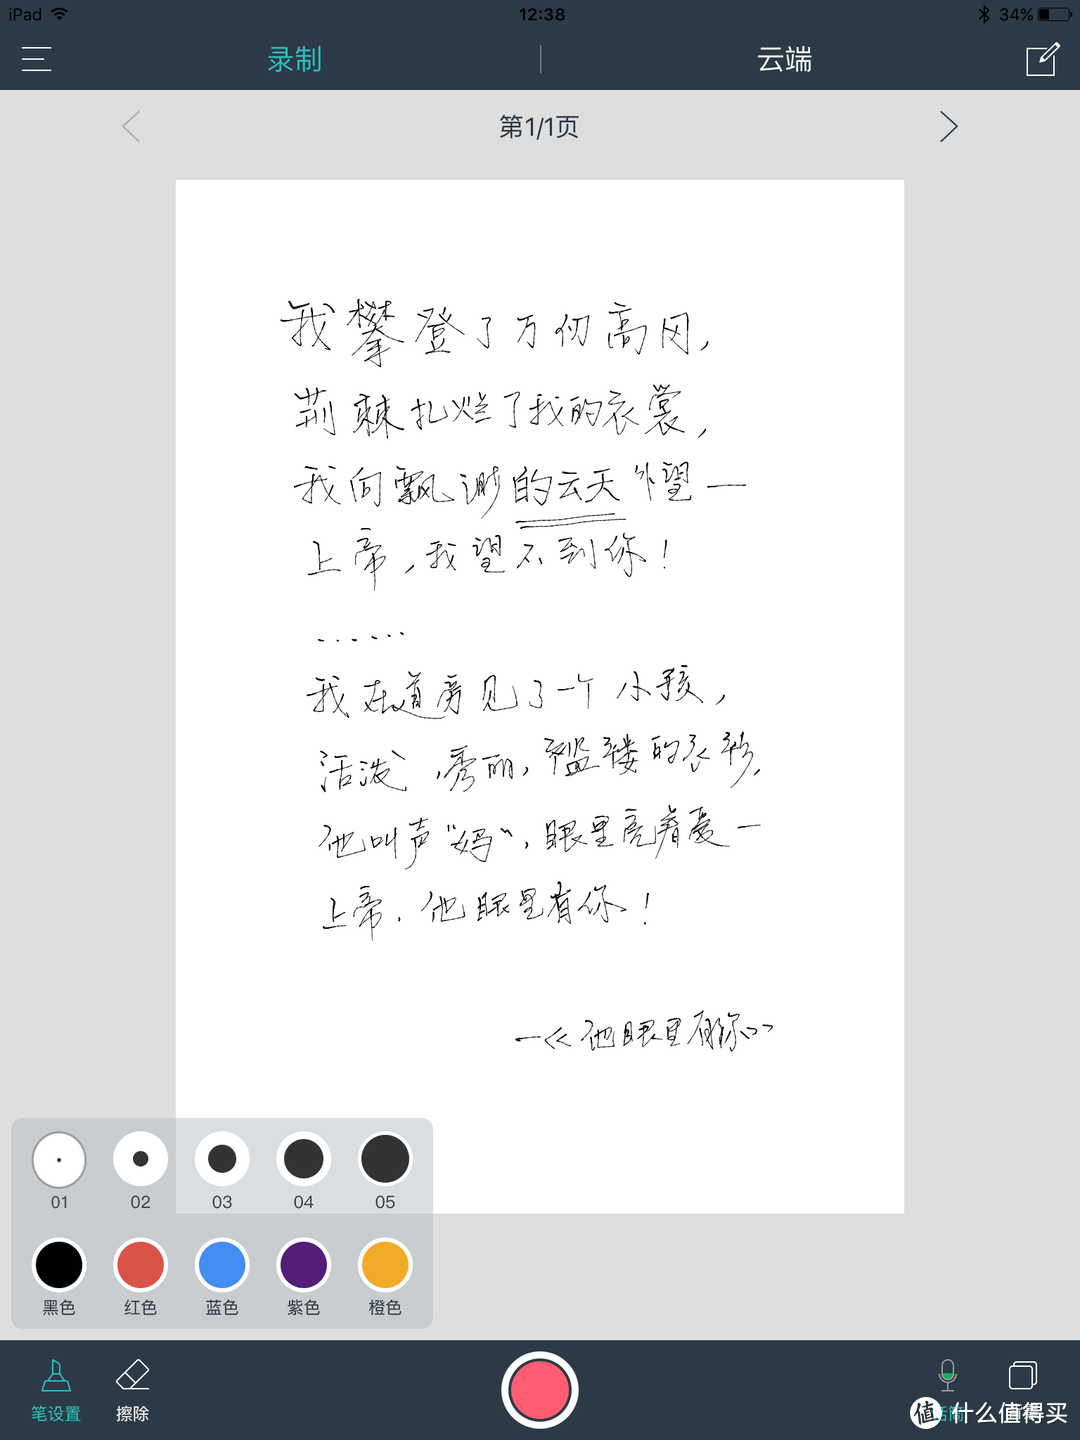 iPad 12:38 34%
录制 云端
第1/1页
我攀登了万仞高冈，
荆棘扎烂了我的衣裳，
我向飘渺的云天外望—
上帝，我望不到你！
……
我在道旁见了一个小孩，
活泼，秀丽，褴褛的衣衫，
他叫声“妈”，眼里亮着爱—
上帝．他眼里有你！
—《他眼里有你》
01 02 03 04 05
黑色 红色 蓝色 紫色 橙色
笔设置 擦除
值 什么值得买